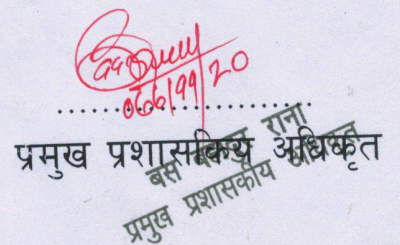 ०७६/११/२०
..............................
प्रमुख प्रशासकिय अधिकृत
राना
प्रमुख प्रशासकीय अधिकृत